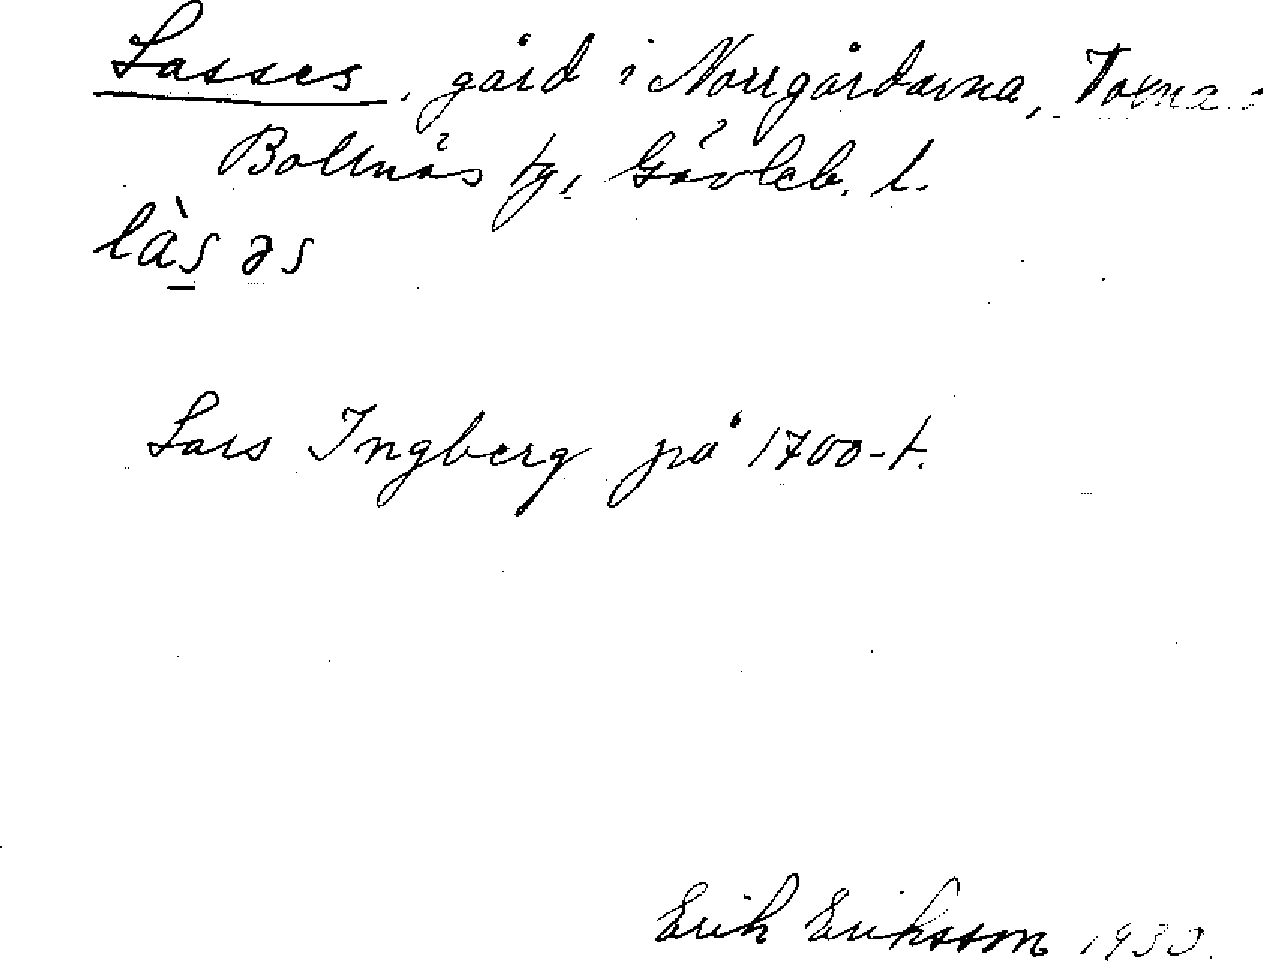 Lasses, gård i Norrgårdarna,
Bollnäs tg, Gävleb. l.
làs əs
Lars Ingberg på 1700-t.
Erik Eriksson 1930.